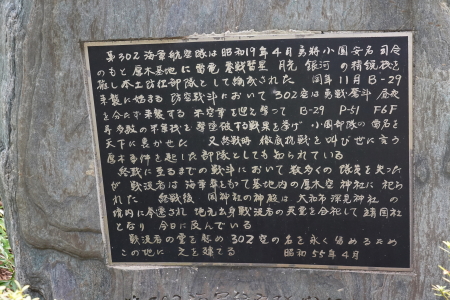 第302海軍航空隊は昭和19年4月勇將小園安名司令
のもと厚木基地に雷電 零戦 彗星 月光 銀河の精鋭機を
擁し本土防衛部隊として編成された 同年11月B-29
来襲に始まる防空戦斗において302空は勇戦奮斗 昼夜
を分たず来襲する米空軍を迎え撃って B-29 P-51 F6F
等多数の米軍機を撃墜破する戦果を挙げ 小園部隊の雷名を
天下に轟かせた 又終戦時 徹底抗戦を叫び世に言う
厚木事件を起した部隊としても知られている
終戦に至るまでの戦斗において数多くの隊員を失った
が 戦没者は海軍葬をもって基地内の厚木空神社に祀ら
れた 終戦後 同神社の神殿は大和市深見神社の
境内に奉遷され 地元出身戦没者の英霊を合祀して靖国社
となり 今日に及んでいる
戦没者の霊を慰め302空の名を永く留めるため
この地に之を建てる 昭和55年4月